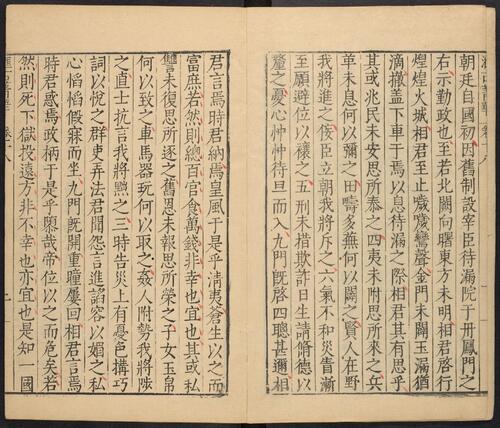 朝廷自國初因舊制設宰臣待漏院于丹鳳門之
右示勤政也至若北闕向曙東方未明相君啓行
煌煌火城相君至止噦噦鸞聲金門未闢玉漏猶
滴撤蓋下車于焉以息待漏之際相君其有思乎
其或兆民未安思所泰之四夷未附思所來之兵
革未息何以彌之田疇多蕪何以闢之賢人在野
我將進之佞臣立朝我將斥之六氣不和災眚漸
至願避位以禳之五刑未措欺詐日生請脩德以
釐之憂心忡忡待旦而入九門既啓四聰甚邇相
君言焉時君納焉皇風于是乎淸夷蒼生以之而
富庶若然則總百官食萬錢非幸也宜也其或私
讐未復思所逐之舊恩未報思所榮之子女玉帛
何以致之車馬器玩何以取之姦人附勢我將陟
之直士抗言我將黜之三時告災上有憂色搆巧
詞以悅之群吏弄法君聞怨言進諂容以媚之私
心慆慆假寐而坐九門既開重瞳屢回相君言焉
時君惑焉政柄于是乎隳哉帝位以之而危矣若
然則死下獄投遠方非不幸也亦宜也是知一國